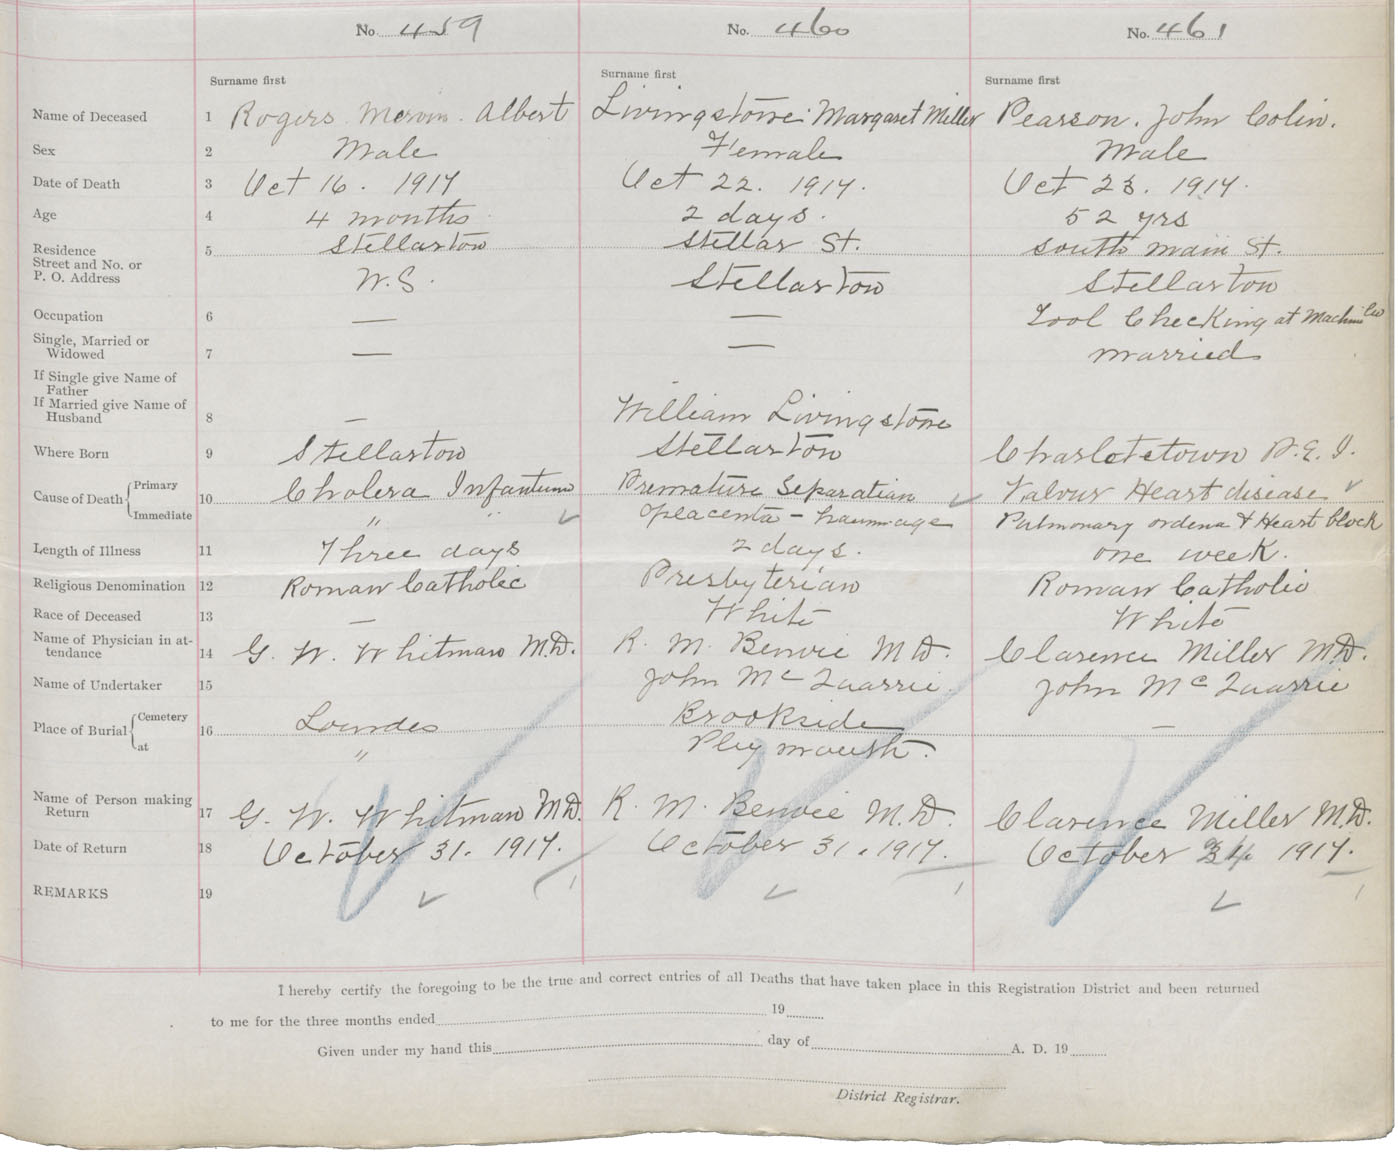 No. 459 No. 460 No. 461
Surname first Surname first Surname first
Name of Deceased 1 Rogers Mervin Albert Livingstone Margaret Miller Pearson. John Colin.
Sex 2 Male Female Male
Date of Death 3 Oct 16. 1917 Oct 22. 1917. Oct 23. 1917.
Age 4 4 months 2 days. 52 yrs
Residence
Street and No. or
P. O. Address
5 Stellarton Stellar St. South Main St.
N.S. Stellarton Stellarton
Occupation 6 — — Tool Checking at Machine Co
Single, Married or
Widowed 7 — — Married
If Single give Name of
Father
If Married give Name of
Husband 8 — William Livingstone
Where Born 9 Stellarton Stellarton Charlotetown P.E.I.
Cause of Death { Primary 10 Cholera Infantum Premature Separation Valour Heart disease
Immediate " " placenta - Pulmonary & Heart block
Length of Illness 11 Three days 2 days. one week.
Religious Denomination 12 Roman Catholic Presbyterian Roman Catholic
Race of Deceased 13 — White White
Name of Physician in at-
tendance 14 G. W. Whitman M.D. R. M. Benvie M.D. Clarence Miller M.D.
Name of Undertaker 15 John McQuarrie. John McQuarrie
Place of Burial { Cemetery 16 Lourdes Brookside —
at " Plymouth.
Name of Person making
Return 17 G. W. Whitman M.D. R. M. Benvie M.D. Clarence Miller M.D.
Date of Return 18 October 31. 1917. October 31. 1917. October 1917.
REMARKS 19
I hereby certify the foregoing to be the true and correct entries of all Deaths that have taken place in this Registration District and been returned
to me for the three months ended 19
Given under my hand this day of A. D. 19
District Registrar.